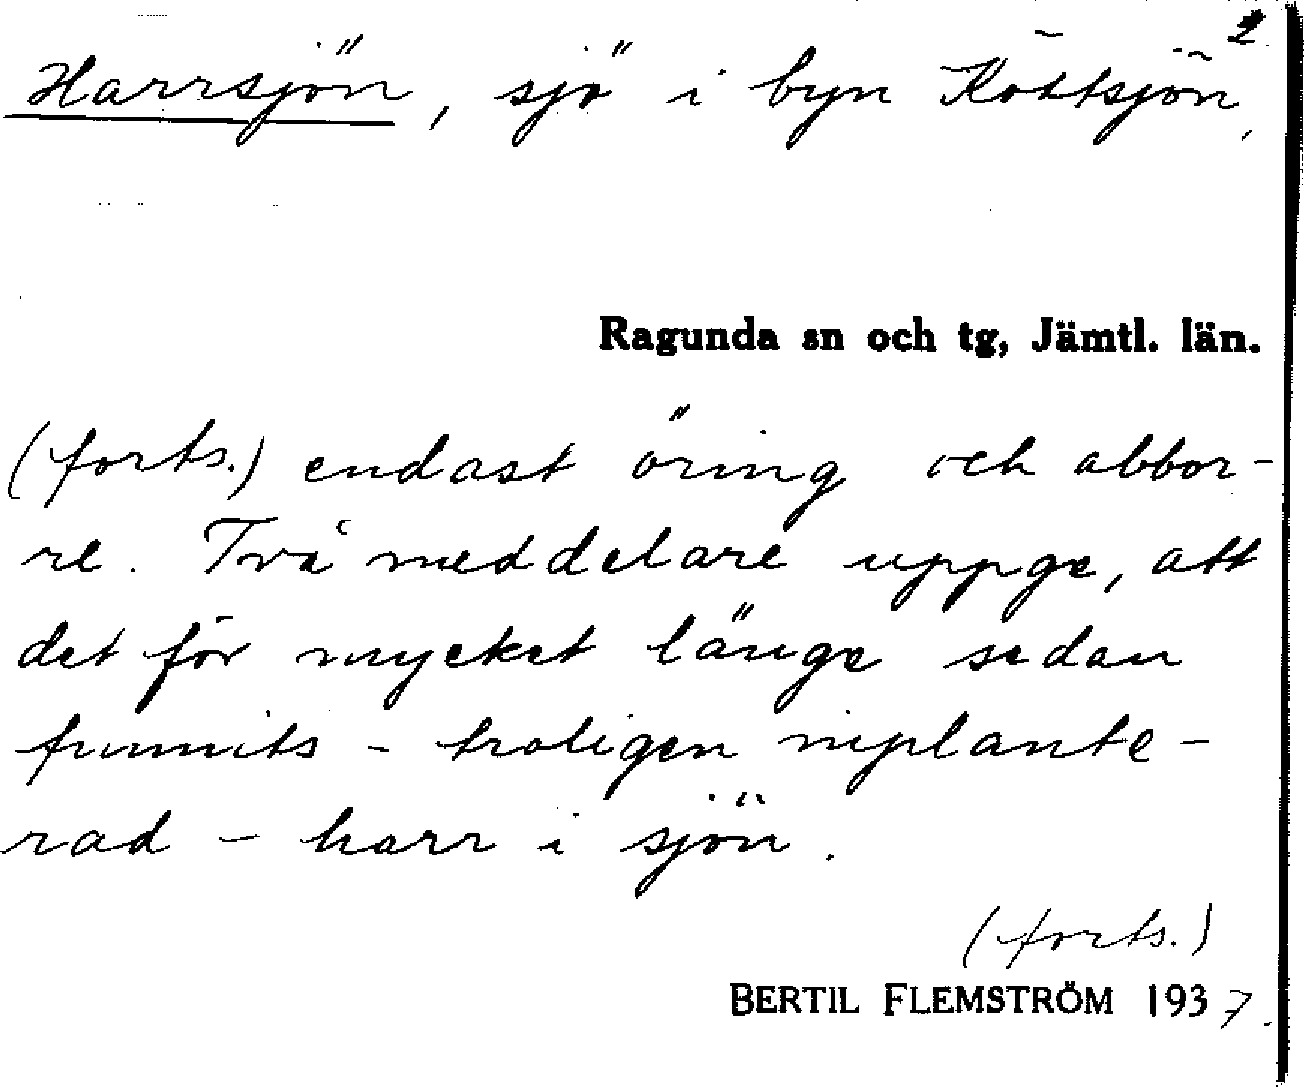 2
Harrsjön, sjö i byn Köttsjön,
Ragunda sn och tg, Jämtl. län.
(forts.) endast öring och abbor-
re. Två meddelare uppge, att
det för mycket länge sedan
funnits - troligen inplante-
rad - harr i sjön.
(forts.)
BERTIL FLEMSTRÖM 1937.